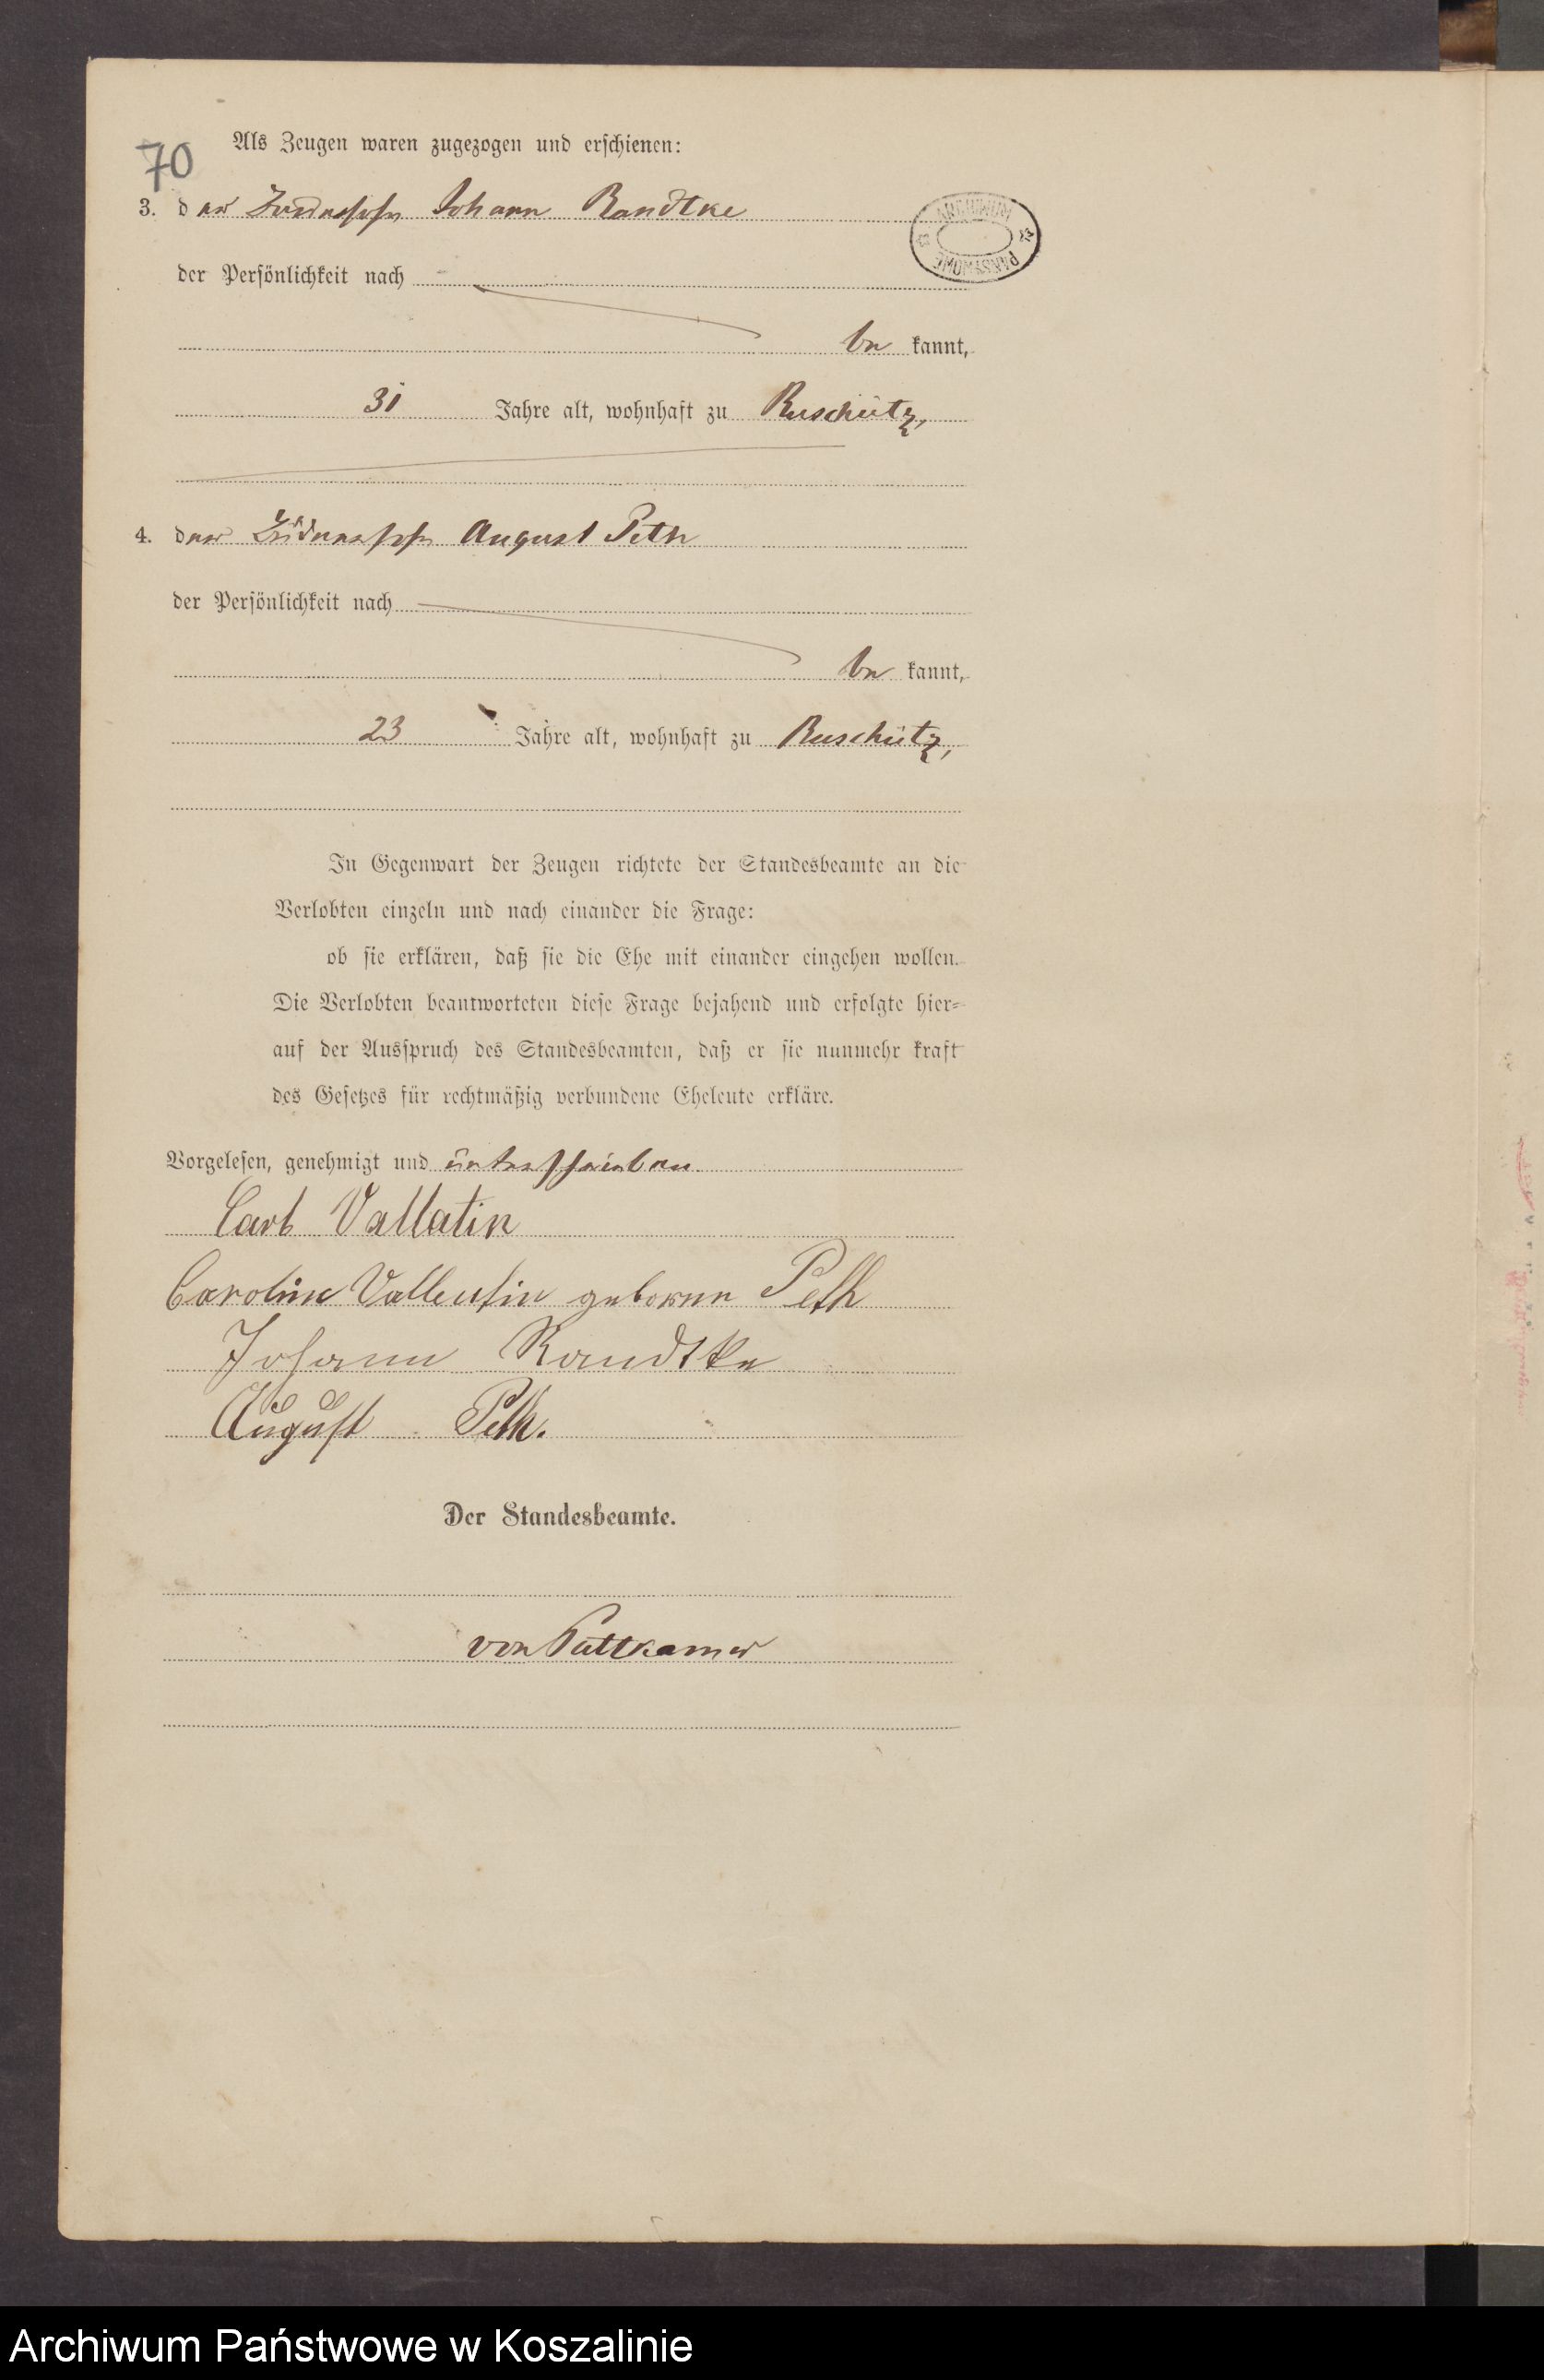 70
Als Zeugen waren zugezogen und erschienen:
3. der Johann Randtke
der Persönlichkeit nach
be kannt,
31 Jahre alt, wohnhaft zu Ruschütz,
4. der August Peth
der Persönlichkeit nach
be kannt,
23 Jahre alt, wohnhaft zu Ruschütz,
In Gegenwart der Zeugen richtete der Standesbeamte an die
Verlobten einzeln und nach einander die Frage:
ob sie erklären, daß sie die Ehe mit einander eingehen wollen.
Die Verlobten beantworteten diese Frage bejahend und erfolgte hier-
auf der Ausspruch des Standesbeamten, daß er sie nunmehr kraft
des Gesetzes für rechtmäßig verbundene Eheleute erkläre.
Vorgelesen, genehmigt und unterschrieben
Carl Vallatin
Caroline Vallentin geborene Peth
Johann Randtke
August Peth.
Der Standesbeamte.
von Puttkamer
ARCHIWUM PAŃSTWOWE
Archiwum Państwowe w Koszalinie